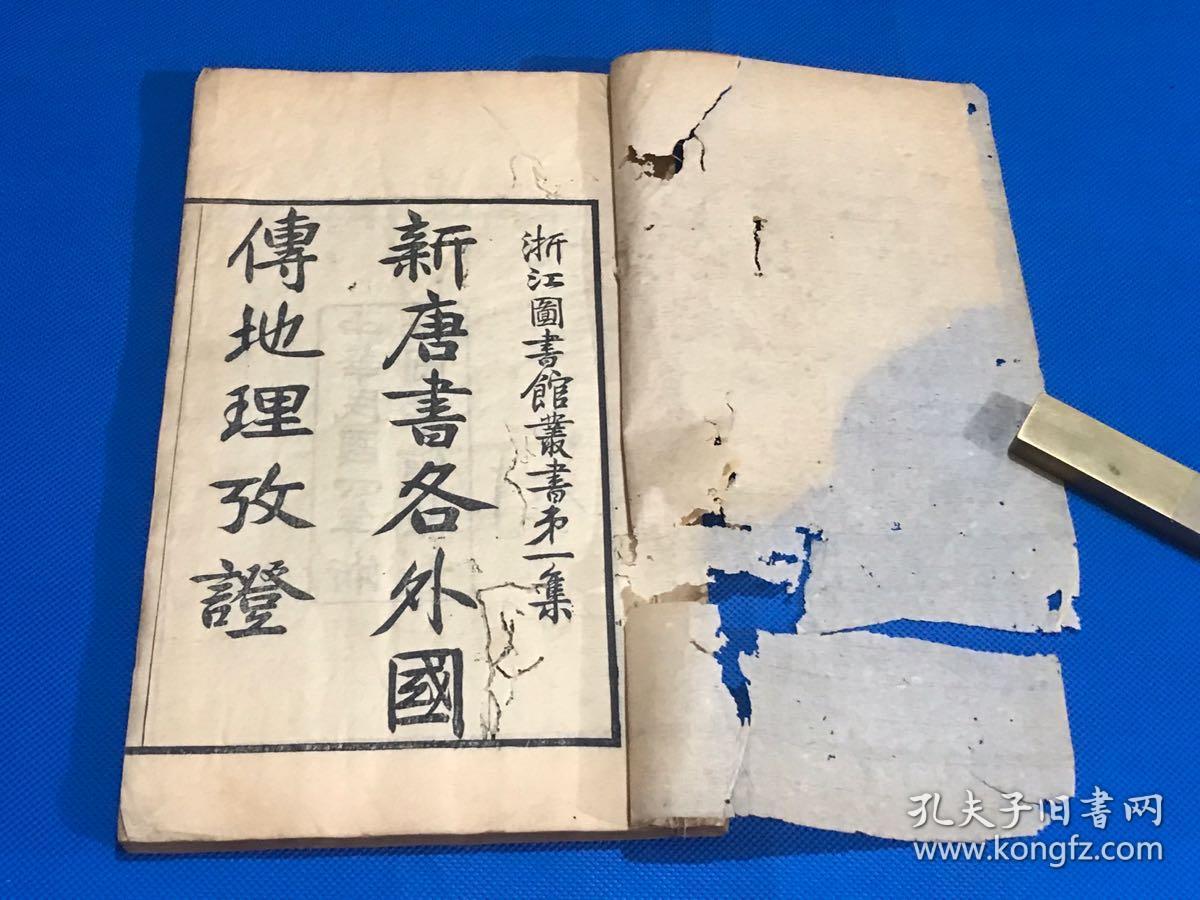 浙江圖書館叢書弟一集
新唐書各外國
傳地理攷證
孔夫子旧书网
www.kongfz.com